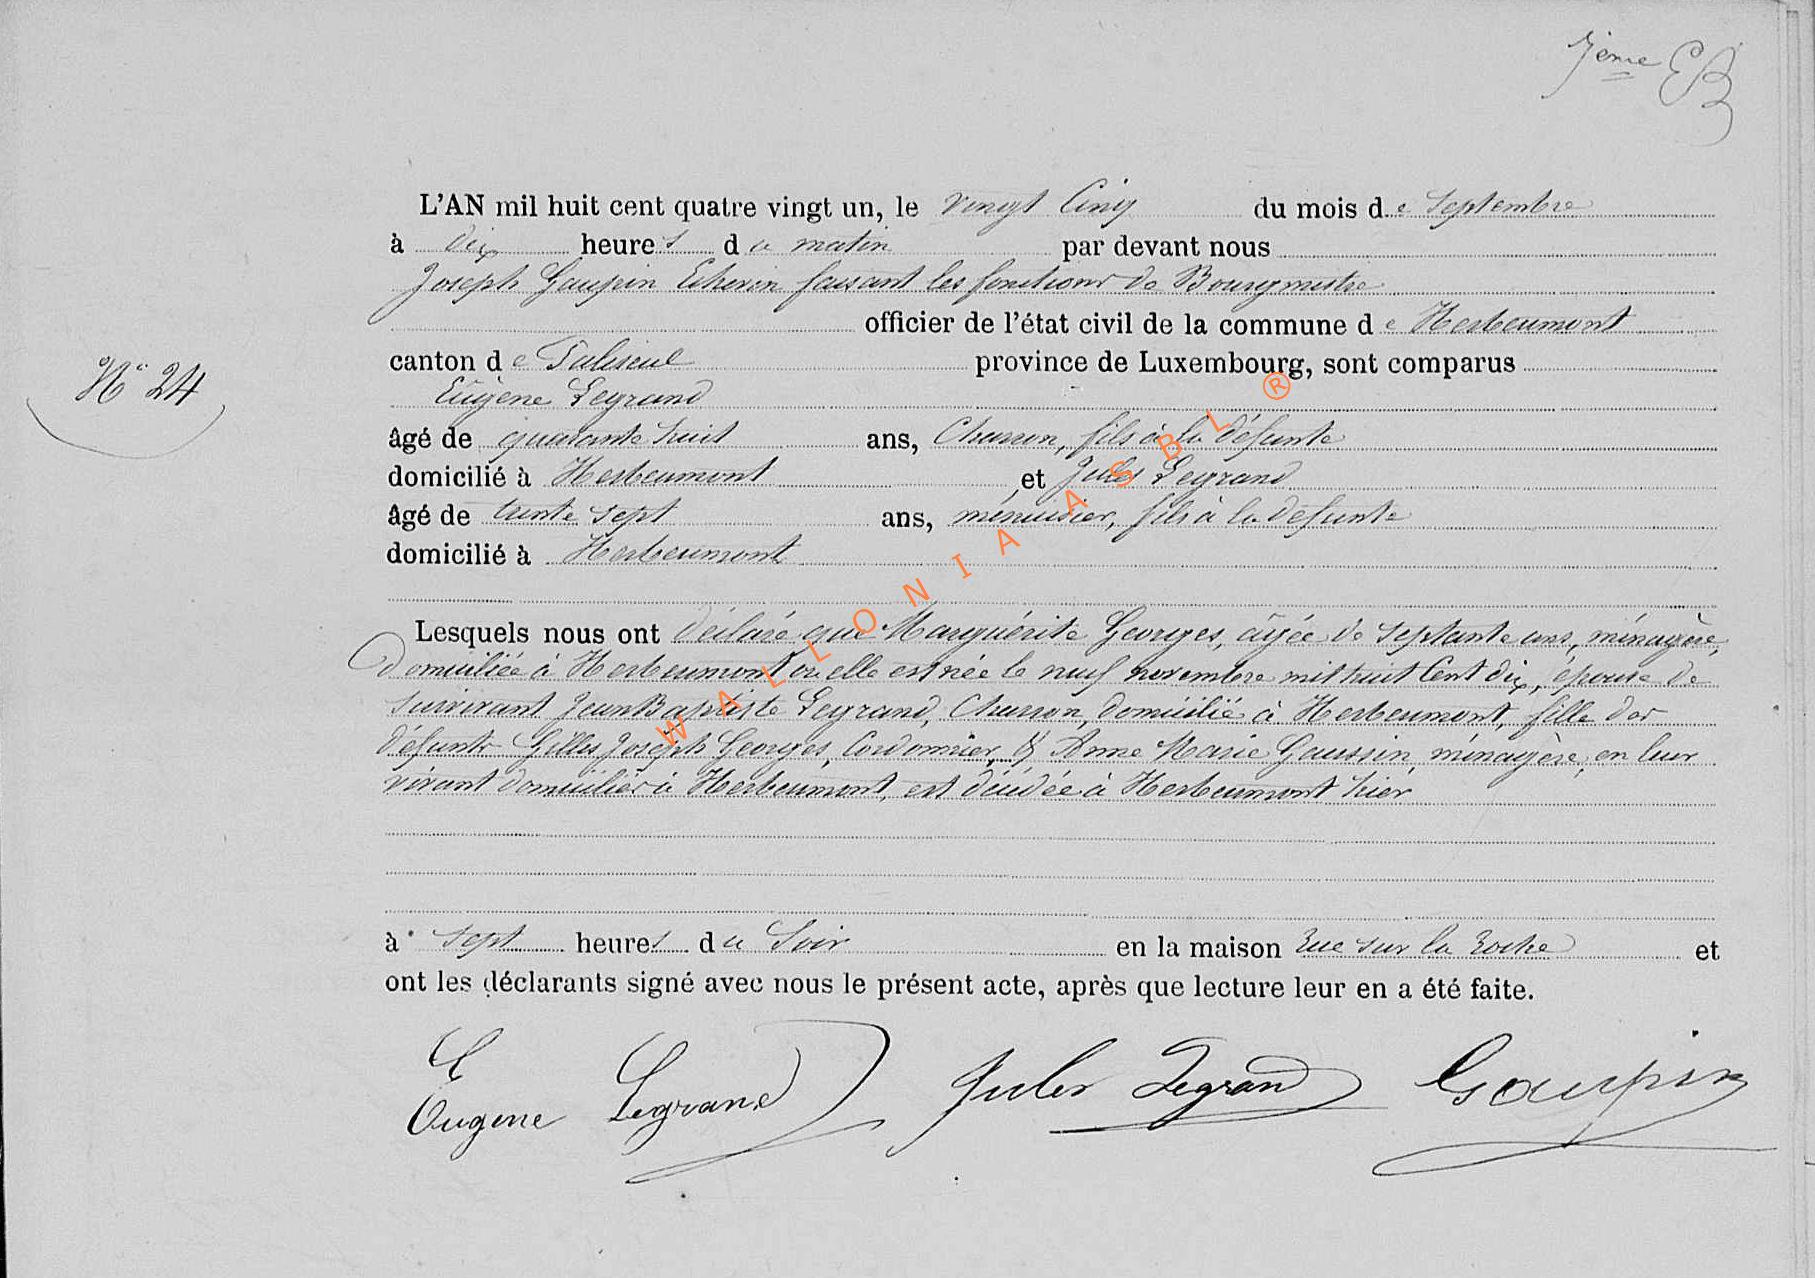 7ème EB
L'AN mil huit cent quatre vingt un, le vingt Cinq du mois de Septembre
à dix heures du matin par devant nous
Joseph Gaupin Echevin faisant les fonctions de Bourgmestre
officier de l'état civil de la commune de Herbeumont
canton de Paliseul province de Luxembourg, sont comparus
N° 24
Eugène Legrand
âgé de quarante huit ans, Charron, fils à la défunte
domicilié à Herbeumont et Jules Legrand
âgé de trente sept ans, ménuisier, fils à la défunte
domicilié à Herbeumont
Lesquels nous ont déclaré que Marguérite Georges, âgée de septante ans, ménagère,
domiciliée à Herbeumont où elle est née le neuf novembre mil huit Cent dix, épouse de
survivant Jean Baptiste Legrand, Charron, domicilié à Herbeumont, fille des
défunts Gilles Joseph Georges, Cordonnier, & Anne Marie Gaussin, ménagère, en leur
vivant domiciliés à Herbeumont, est décédée à Herbeumont hier
à sept heures du Soir en la maison rue sur la roche et
ont les déclarants signé avec nous le présent acte, après que lecture leur en a été faite.
E
Eugene Legrand Jules Legrand Gaupin
WALLONIA ASBL ®